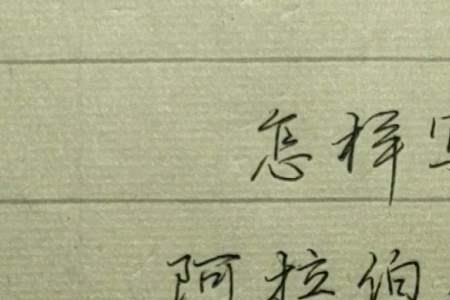 怎样
阿拉伯